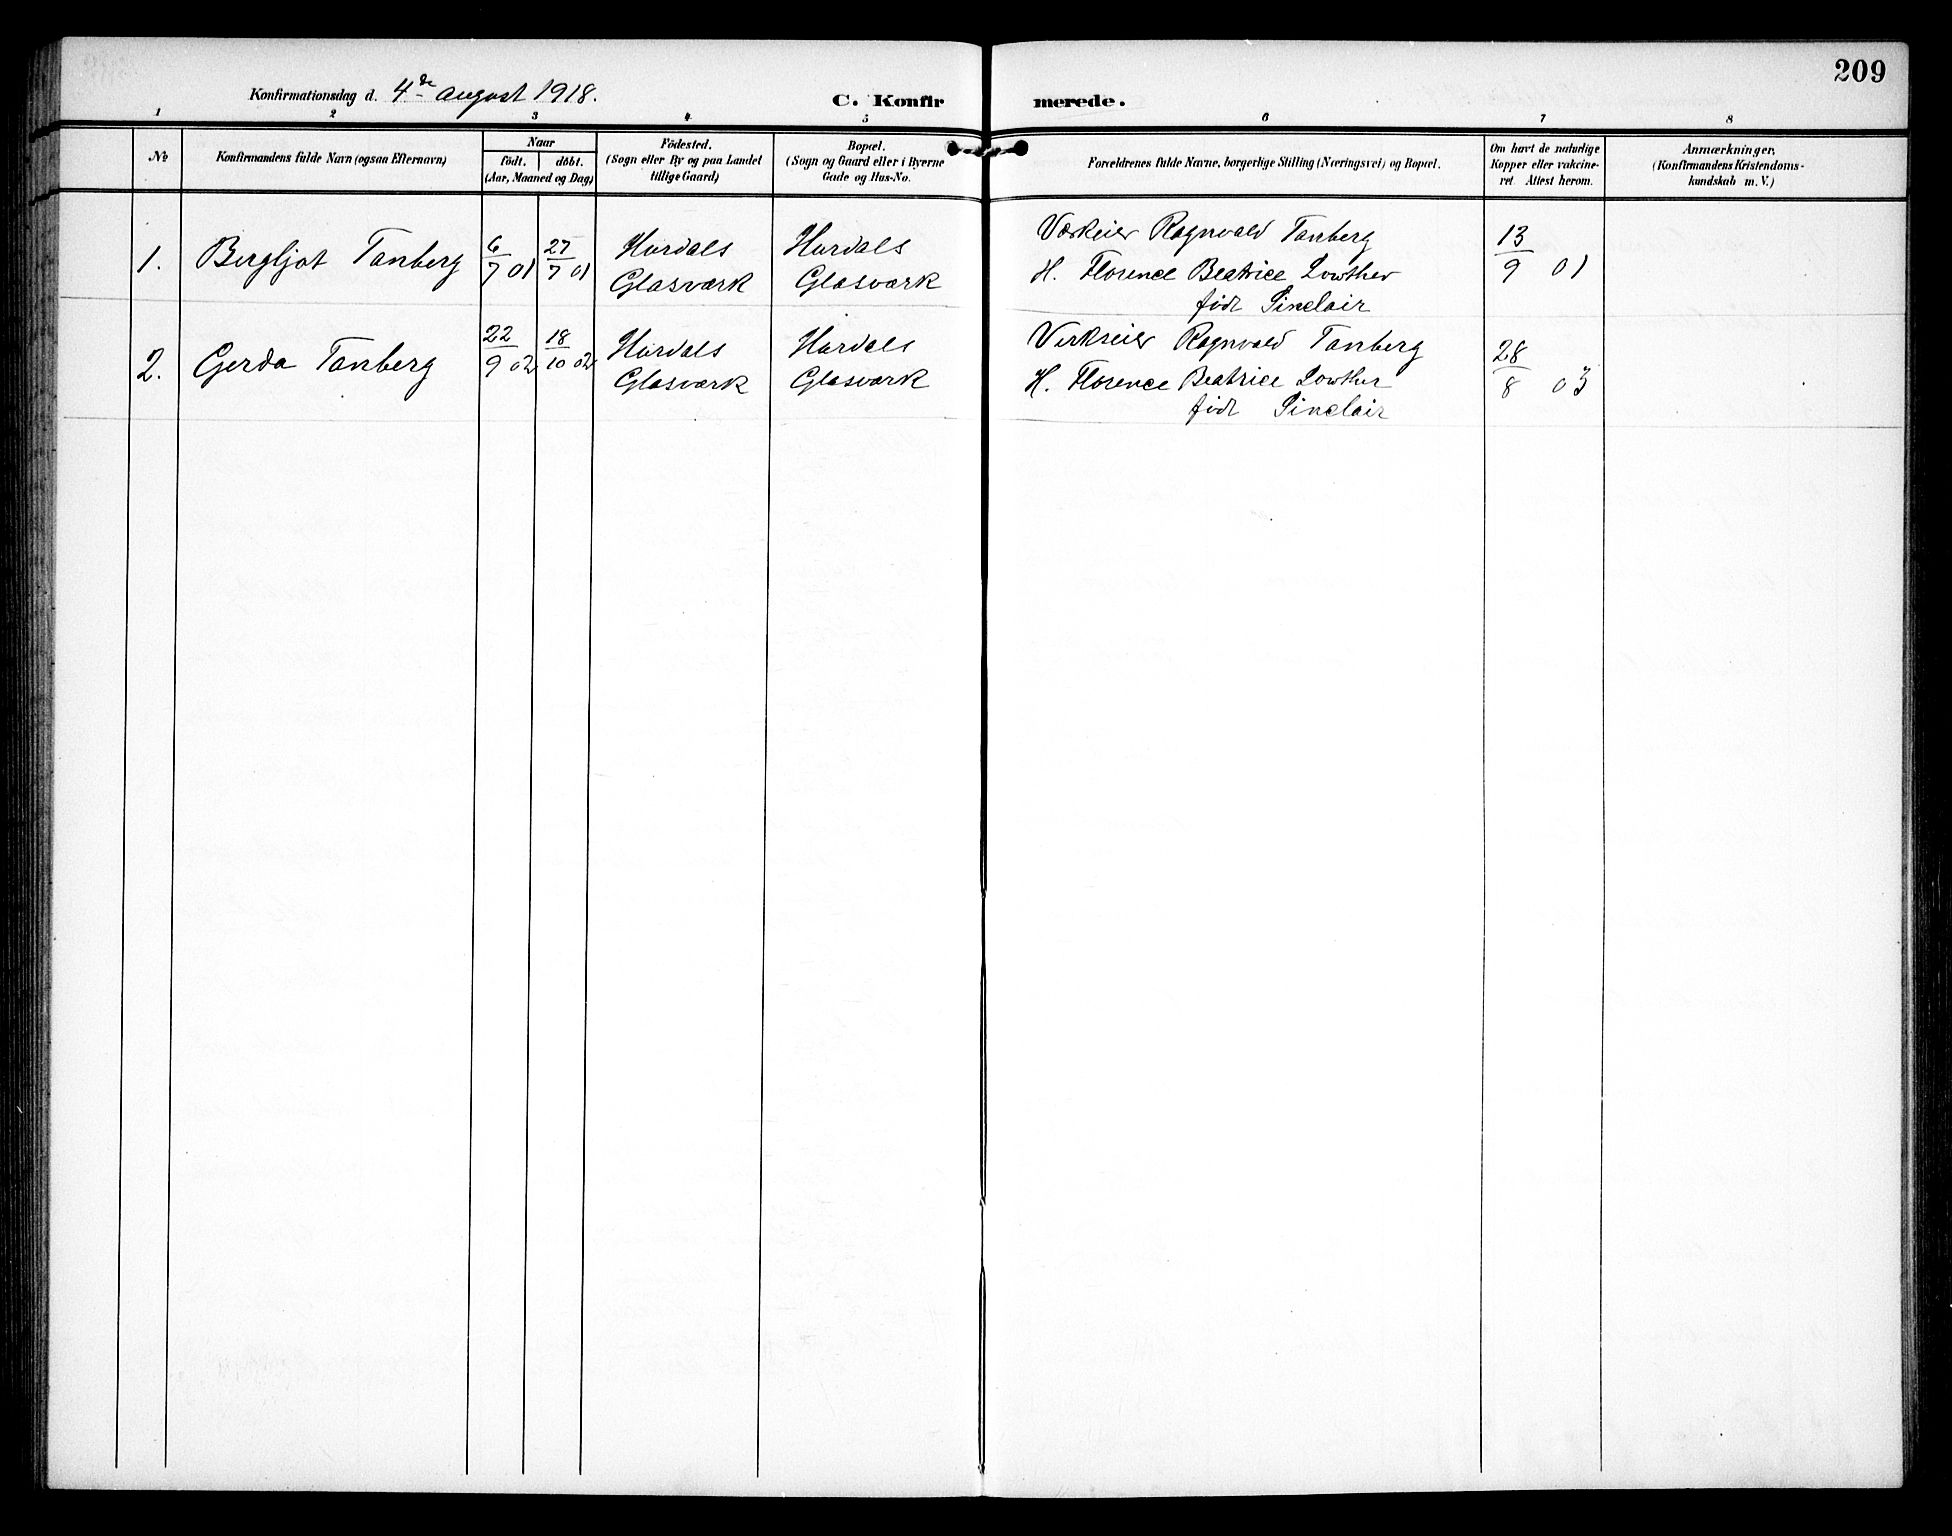 209
Konfirmationsdag d. 4de august 1918.
C. Konfir merede.
1 2 3 4 5 6 7 8
No
Konfirmandens fulde Navn (ogsaa Efternavn)
Naar
födt. döbt.
(Aar, Maaned og Dag)
Födested.
(Sogn eller By og paa Landet
tillige Gaard)
Bopæl.
(Sogn og Gaard eller i Byerne
Gade og Hus-No.
Forældrenes fulde Navne, borgerlige Stilling (Næringsvei) og Bopæl.
Om havt de naturlige
Kopper eller vakcine-
ret. Attest herom.
Anmærkninger,
(Konfirmandens Kristendoms-
kundskab m. V.)
1. Bergljot Tanberg 6/7 01 27/7 01 Hurdals Glasværk Hurdals Glasværk
Værkeier Ragnvald Tanberg
H. Florence Beatrice Lowther
født Sinclair
13/9 01
2. Gerda Tanberg 22/9 02 18/10 02 Hurdals Glasværk Hurdals Glasværk
Verkseier Ragnvald Tanberg
H. Florence Beatrice Lowther
født Sinclair
28/8 03